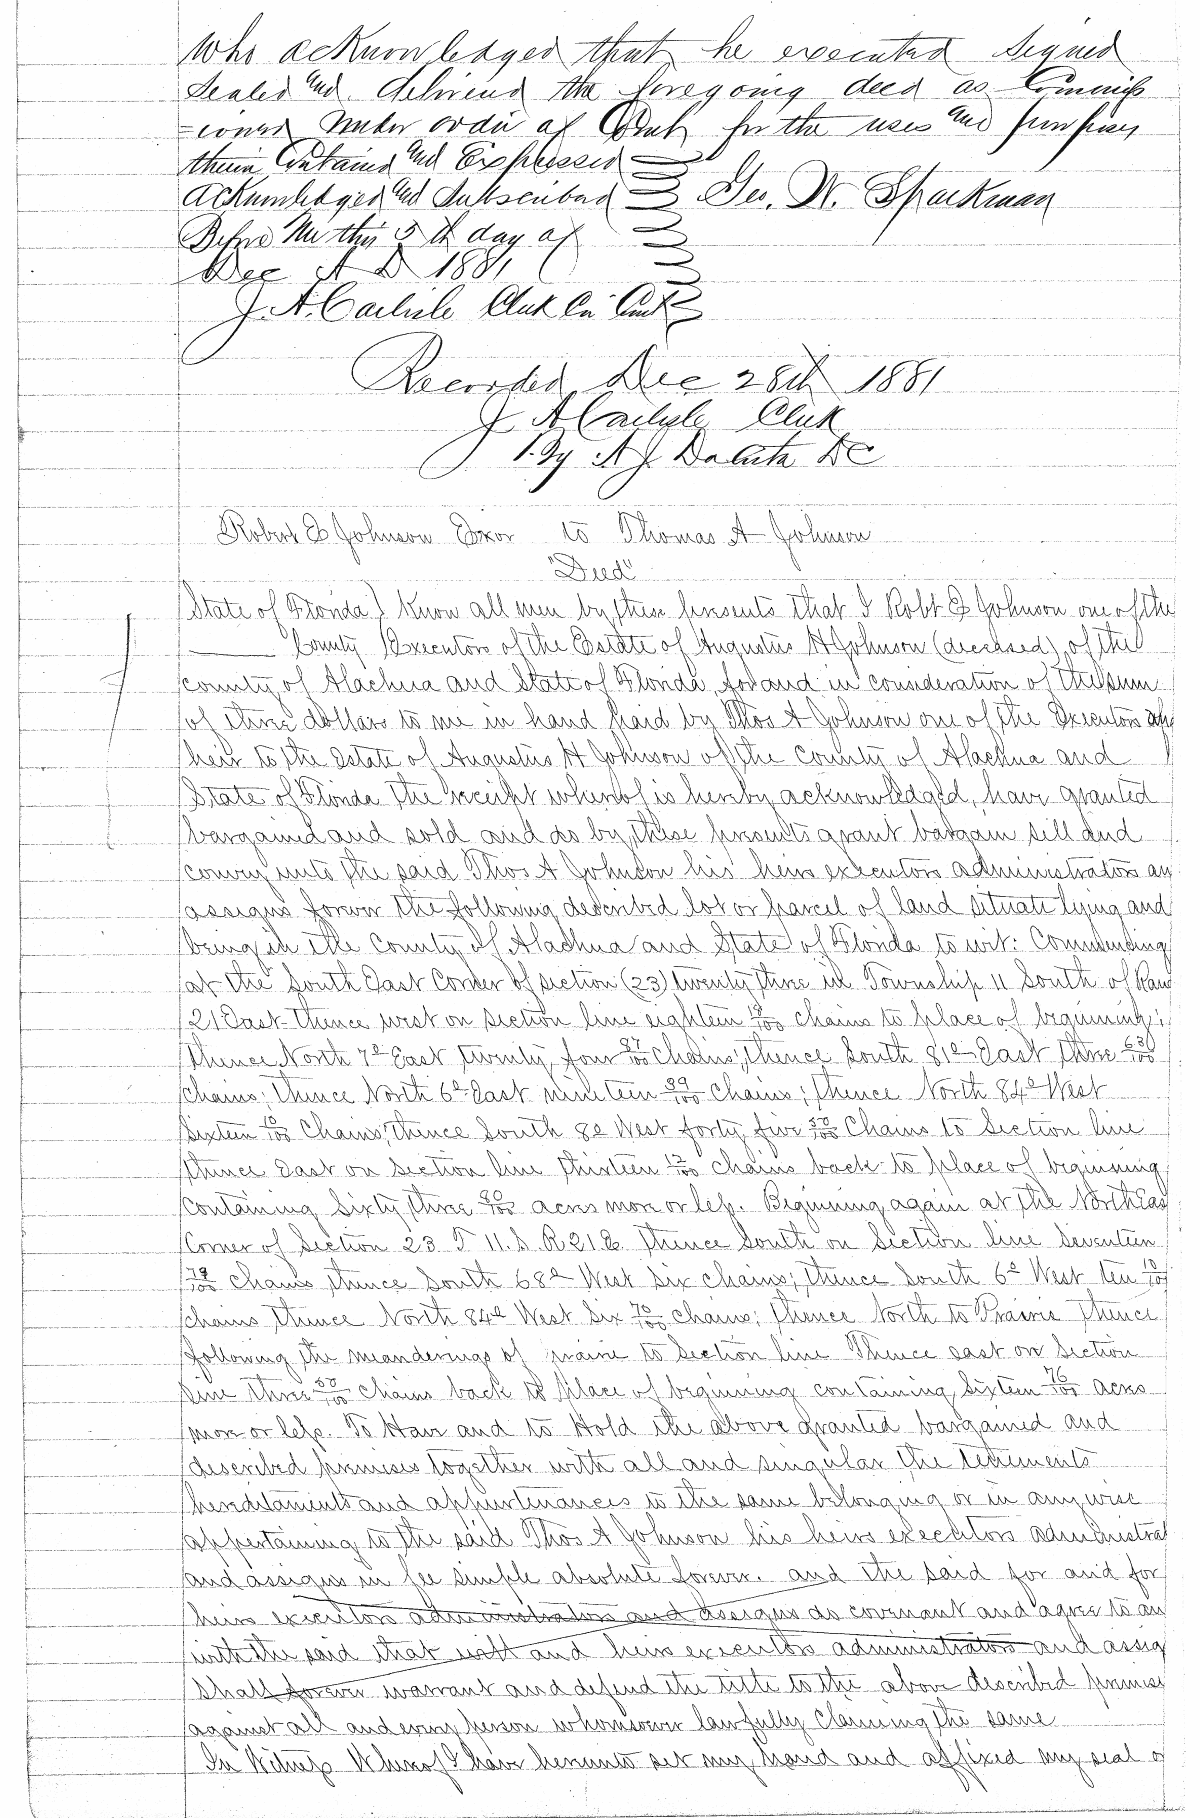 who acknowledged that he executed signed
sealed and delivered the foregoing deed as Commiss
=ioner under order of Court for the uses and purposes
therein Contained and Expressed
Acknowledged and Subscribed Geo. W. Sparkman
Before Me this 5th day of
Dec A D 1881
J. A. Carlisle Clerk Co Court
Recorded Dec 28th 1881
J A Carlisle Clerk
By A J DaCosta DC
Robert E Johnson Exor to Thomas A Johnson
"Deed"
State of Florida } Know all men by these presents that I Robt E Johnson one of the
County } Executors of the Estate of Augustus H Johnson (deceased) of the
county of Alachua and State of Florida, for and in consideration of the sum
of three dollars to me in hand paid by Thos A Johnson one of the Executors and
heir to the Estate of Augustus H Johnson of the County of Alachua and
State of Florida the receipt whereof is hereby acknowledged, have granted
bargained and sold and do by these presents grant bargain sell and
convey unto the said Thos A Johnson his heirs executors administrators an
assigns forever the following described lot or parcel of land situate lying and
being in the County of Alachua and State of Florida to wit: Commencing
at the South East Corner of section (23) twenty three in Township 11 South of Rang
21 East thence west on section line eighteen 18/100 chains to place of beginning;
thence North 7° East twenty four 87/100 Chains; thence South 81° East three 63/100
chains; thence North 6° East nineteen 89/100 chains; thence North 84° West
sixteen 10/100 Chains; thence South 8° West forty five 50/100 Chains to Section line
thence East on section line thirteen 12/100 chains back to place of beginning
Containing Sixty three 80/100 acres more or less. Beginning again at the North Eas
Corner of Section 23 T 11. S. R 21 E thence South on Section line Seventeen
79/100 chains thence South 68° West six chains; thence South 6° West ten 10/100
chains thence North 84° West Six 70/100 chains; thence North to Prairie thence
following the meanderings of prairie to Section line Thence east on Section
line three 50/100 chains back to place of beginning containing Sixteen 76/100 acres
more or less. To Have and to Hold the above granted bargained and
described premises together with all and singular the tenements
hereditaments and appurtenances to the same belonging or in anywise
appertaining to the said Thos A Johnson his heirs executors administrat
and assigns in fee simple absolute forever. and the said for and for
heirs executors administrators and assigns do covenant and agree to an
with the said that will and heirs executors administrators and assig
shall forever warrant and defend the title to the above described premises
against all and every person whomsoever lawfully claiming the same
In Witness Whereof I have hereunto set my hand and affixed my seal o